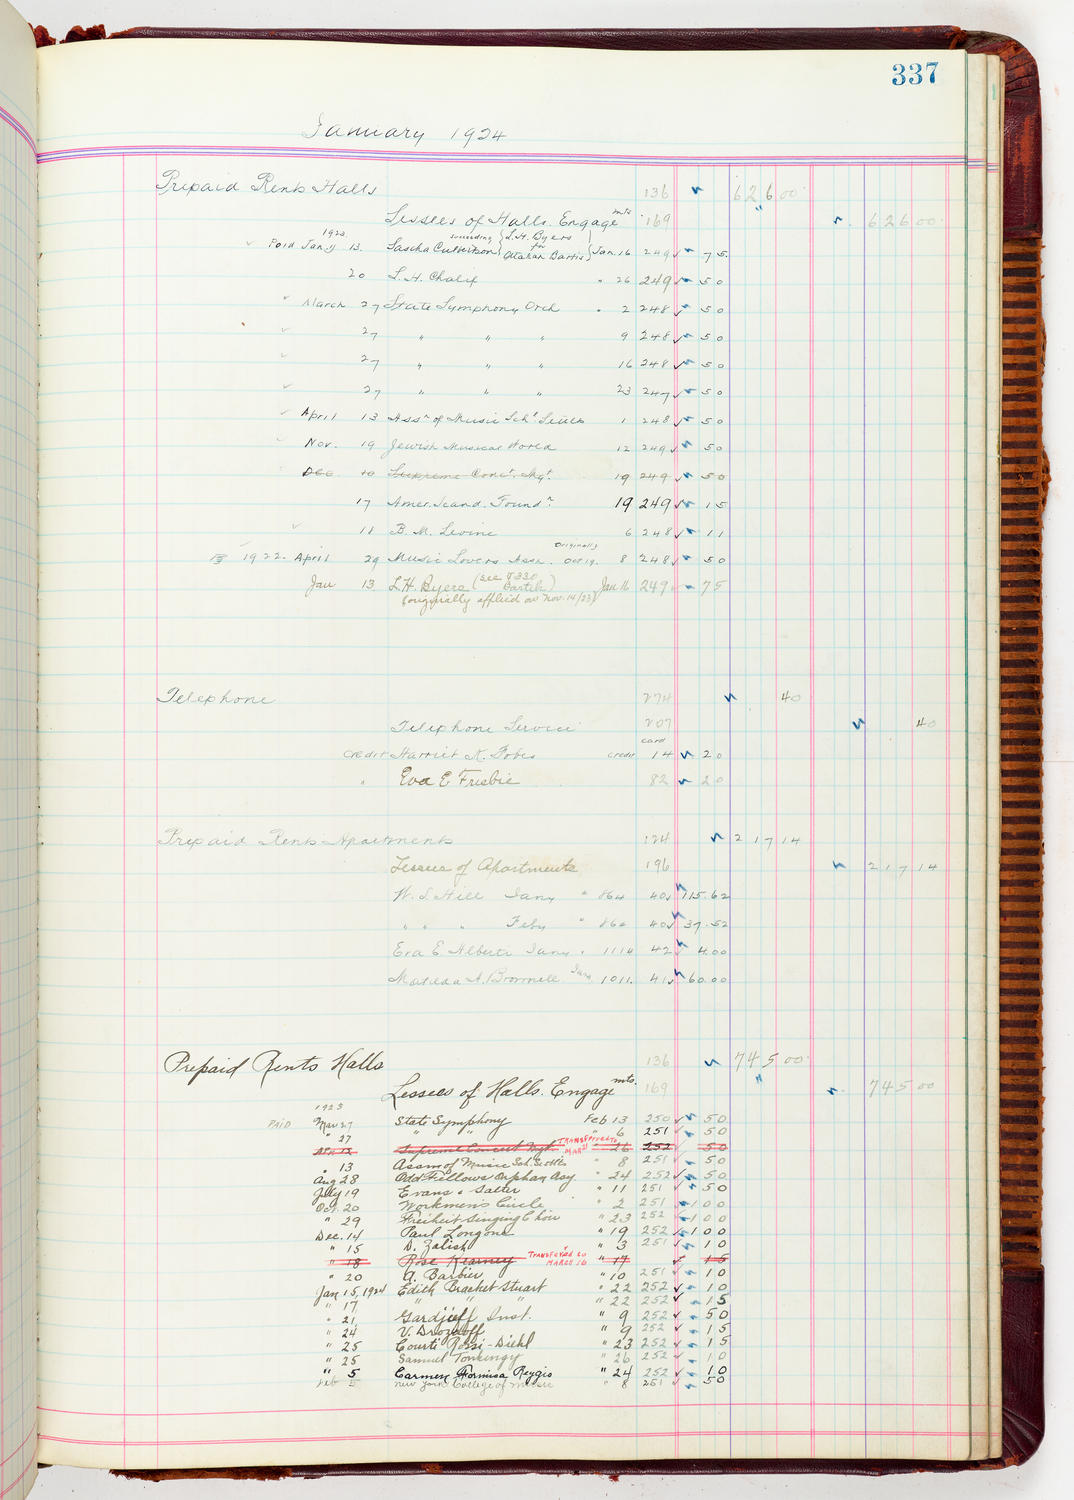 337
January 1924
Prepaid Rents Halls 136 626 00
Lessees of Halls. Engagemts 169 626 00
1923
Paid Jany 13. Sascha Culbertson succeeding { L. H. Byers for } Jan. 16 249 75.
20 L. H. Chalif " 26 249 50
" March 27 State Symphony Orch " 2 248 50
27 " " " 9 248 50
27 " " " 16 248 50
27 " " " 23 247 50
April 13 Assn of Music Schl Settlts 1 248 50
Nov. 19 Jewish Musical World 12 249 50
Dec 10 Supreme Conct. Mgt. 19 249 50
17 Amer. Scand. Foundn. 19 249 15
18 B. M. Levine 6 248 11
1922. April 29 Music Lovers Assn. Originally Oct 19. 8 248 50
Jan 13 L.H. Byers (see P 330 Bartik) Jan 16 249 75
(originally applied on Nov. 14/23)
Telephone 274 40
Telephone Service 207 40
card
credit Harriet K. Fobes credit 14 20
" Eva E Frisbie 82 20
Prepaid Rents Apartments 124 217 14
Lessees of Apartments 196 217 14
W. S. Hill Jany " 864 40 115.62
" " " Feby " 864 40 37.52
Eva E Alberti Jany " 1114 42 4.00
Matilda A. Brownell Jany 1011. 41 60.00
Prepaid Rents Halls 136 745 00
Lessees of Halls. Engagemts. 169 745 00
1923
PAID Mar 27 State Symphony Feb 13 250 50
" 27 " " " 6 251 50
Apr 12 Supreme Concert Mgt. TRANSFERRED TO MAR " 26 252 50
" 13 Assn of Music Sch. Settlts " 8 251 50
Aug 28 Odd Fellows Orphan Asy. " 24 252 50
July 19 Evans & Salter " 11 251 50
Oct. 20 Workmen's Circle " 2 251 100
" 29 Freiheit Singing Choir " 23 252 100
Dec. 14 Paul Longone " 19 252 100
" 15 D. Zalish " 3 251 10
" 18 Rose Kearney TRANSFERRED TO MARCH 16 " 17 15
" 20 A. Barbier " 10 251 10
Jan 15, 1924 Edith Bracket Stuart " 22 252 10
" 17 " " " " 22 252 15
" 21 Gardjieff Inst. " 9 252 50
" 24 V. Drozdoff " 9 252 15
" 25 Courti Rossi-Diehl " 23 252 15
" 25 Samuel Tonkingy " 26 252 10
" 5 Carmen Formisa Reggio " 24 252 10
Feb New York College of Music " 8 251 50